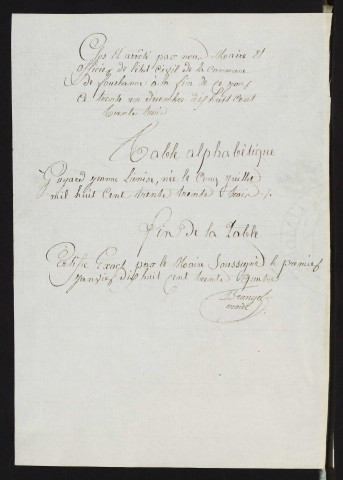 Clos et arrêté par nous Maire et
officier de l'état civil de la Commune
de fontanne a la fin de ce jour
trente un decembre dix huit cent
trente trois
Table alphabétique
Gayard Louise, née le Cinq juillet
mil huit Cent trente trente trois /.
fin de la Table
Certifié Exact par le Maire Soussigné le premier
janvier dix huit cent trente quatre
maire